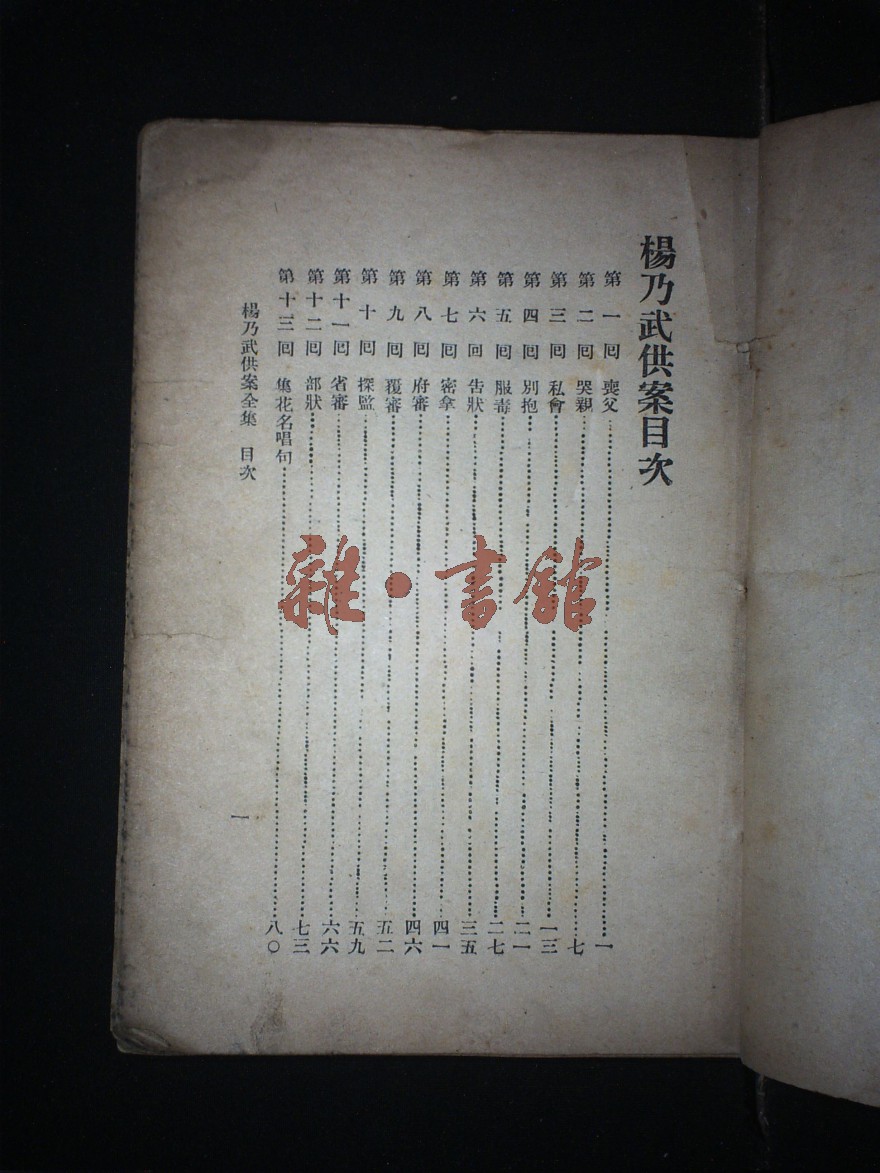 楊乃武供案目次
第一囘 喪父 一
第二囘 哭親 七
第三囘 私會 一三
第四囘 別抱 二一
第五囘 服毒 二七
第六回 告狀 三五
第七囘 密拿 四一
第八囘 府審 四六
第九囘 覆審 五二
第十囘 探監 五九
第十一囘 省審 六六
第十二囘 部狀 七三
第十三囘 集花名唱句 八〇
楊乃武供案全集 目次 一
雜·書館